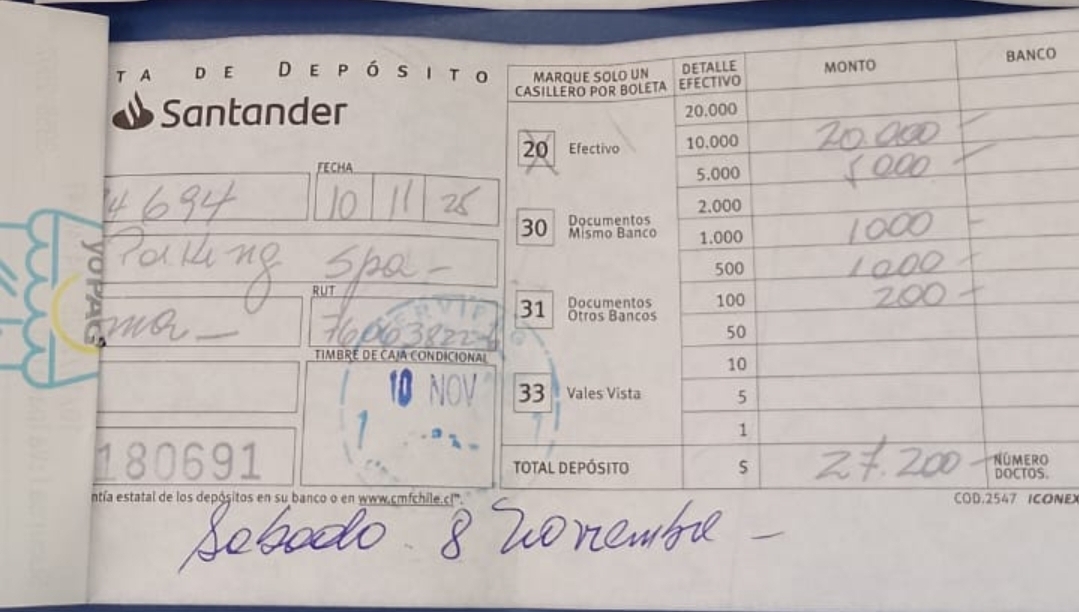 TA DE DEPÓSITO
Santander
FECHA
4694
10 11 25
Parking Spa -
RUT
76063822-
TIMBRE DE CAJA CONDICIONAL
10 NOV
180691
ntía estatal de los depósitos en su banco o en www.cmfchile.cl".
MARQUE SOLO UN
CASILLERO POR BOLETA
20 Efectivo
30 Documentos
Mismo Banco
31 Documentos
Otros Bancos
33 Vales Vista
DETALLE
EFECTIVO
MONTO
BANCO
20.000
10.000 20.000 -
5.000 5000 -
2.000
1.000 1000 -
500 1000 -
100 200 -
50
10
5
1
TOTAL DEPÓSITO $ 27.200 -
NÚMERO
DOCTOS.
COD.2547 ICONEX
Sabado 8 Noviembre -
YOPAG